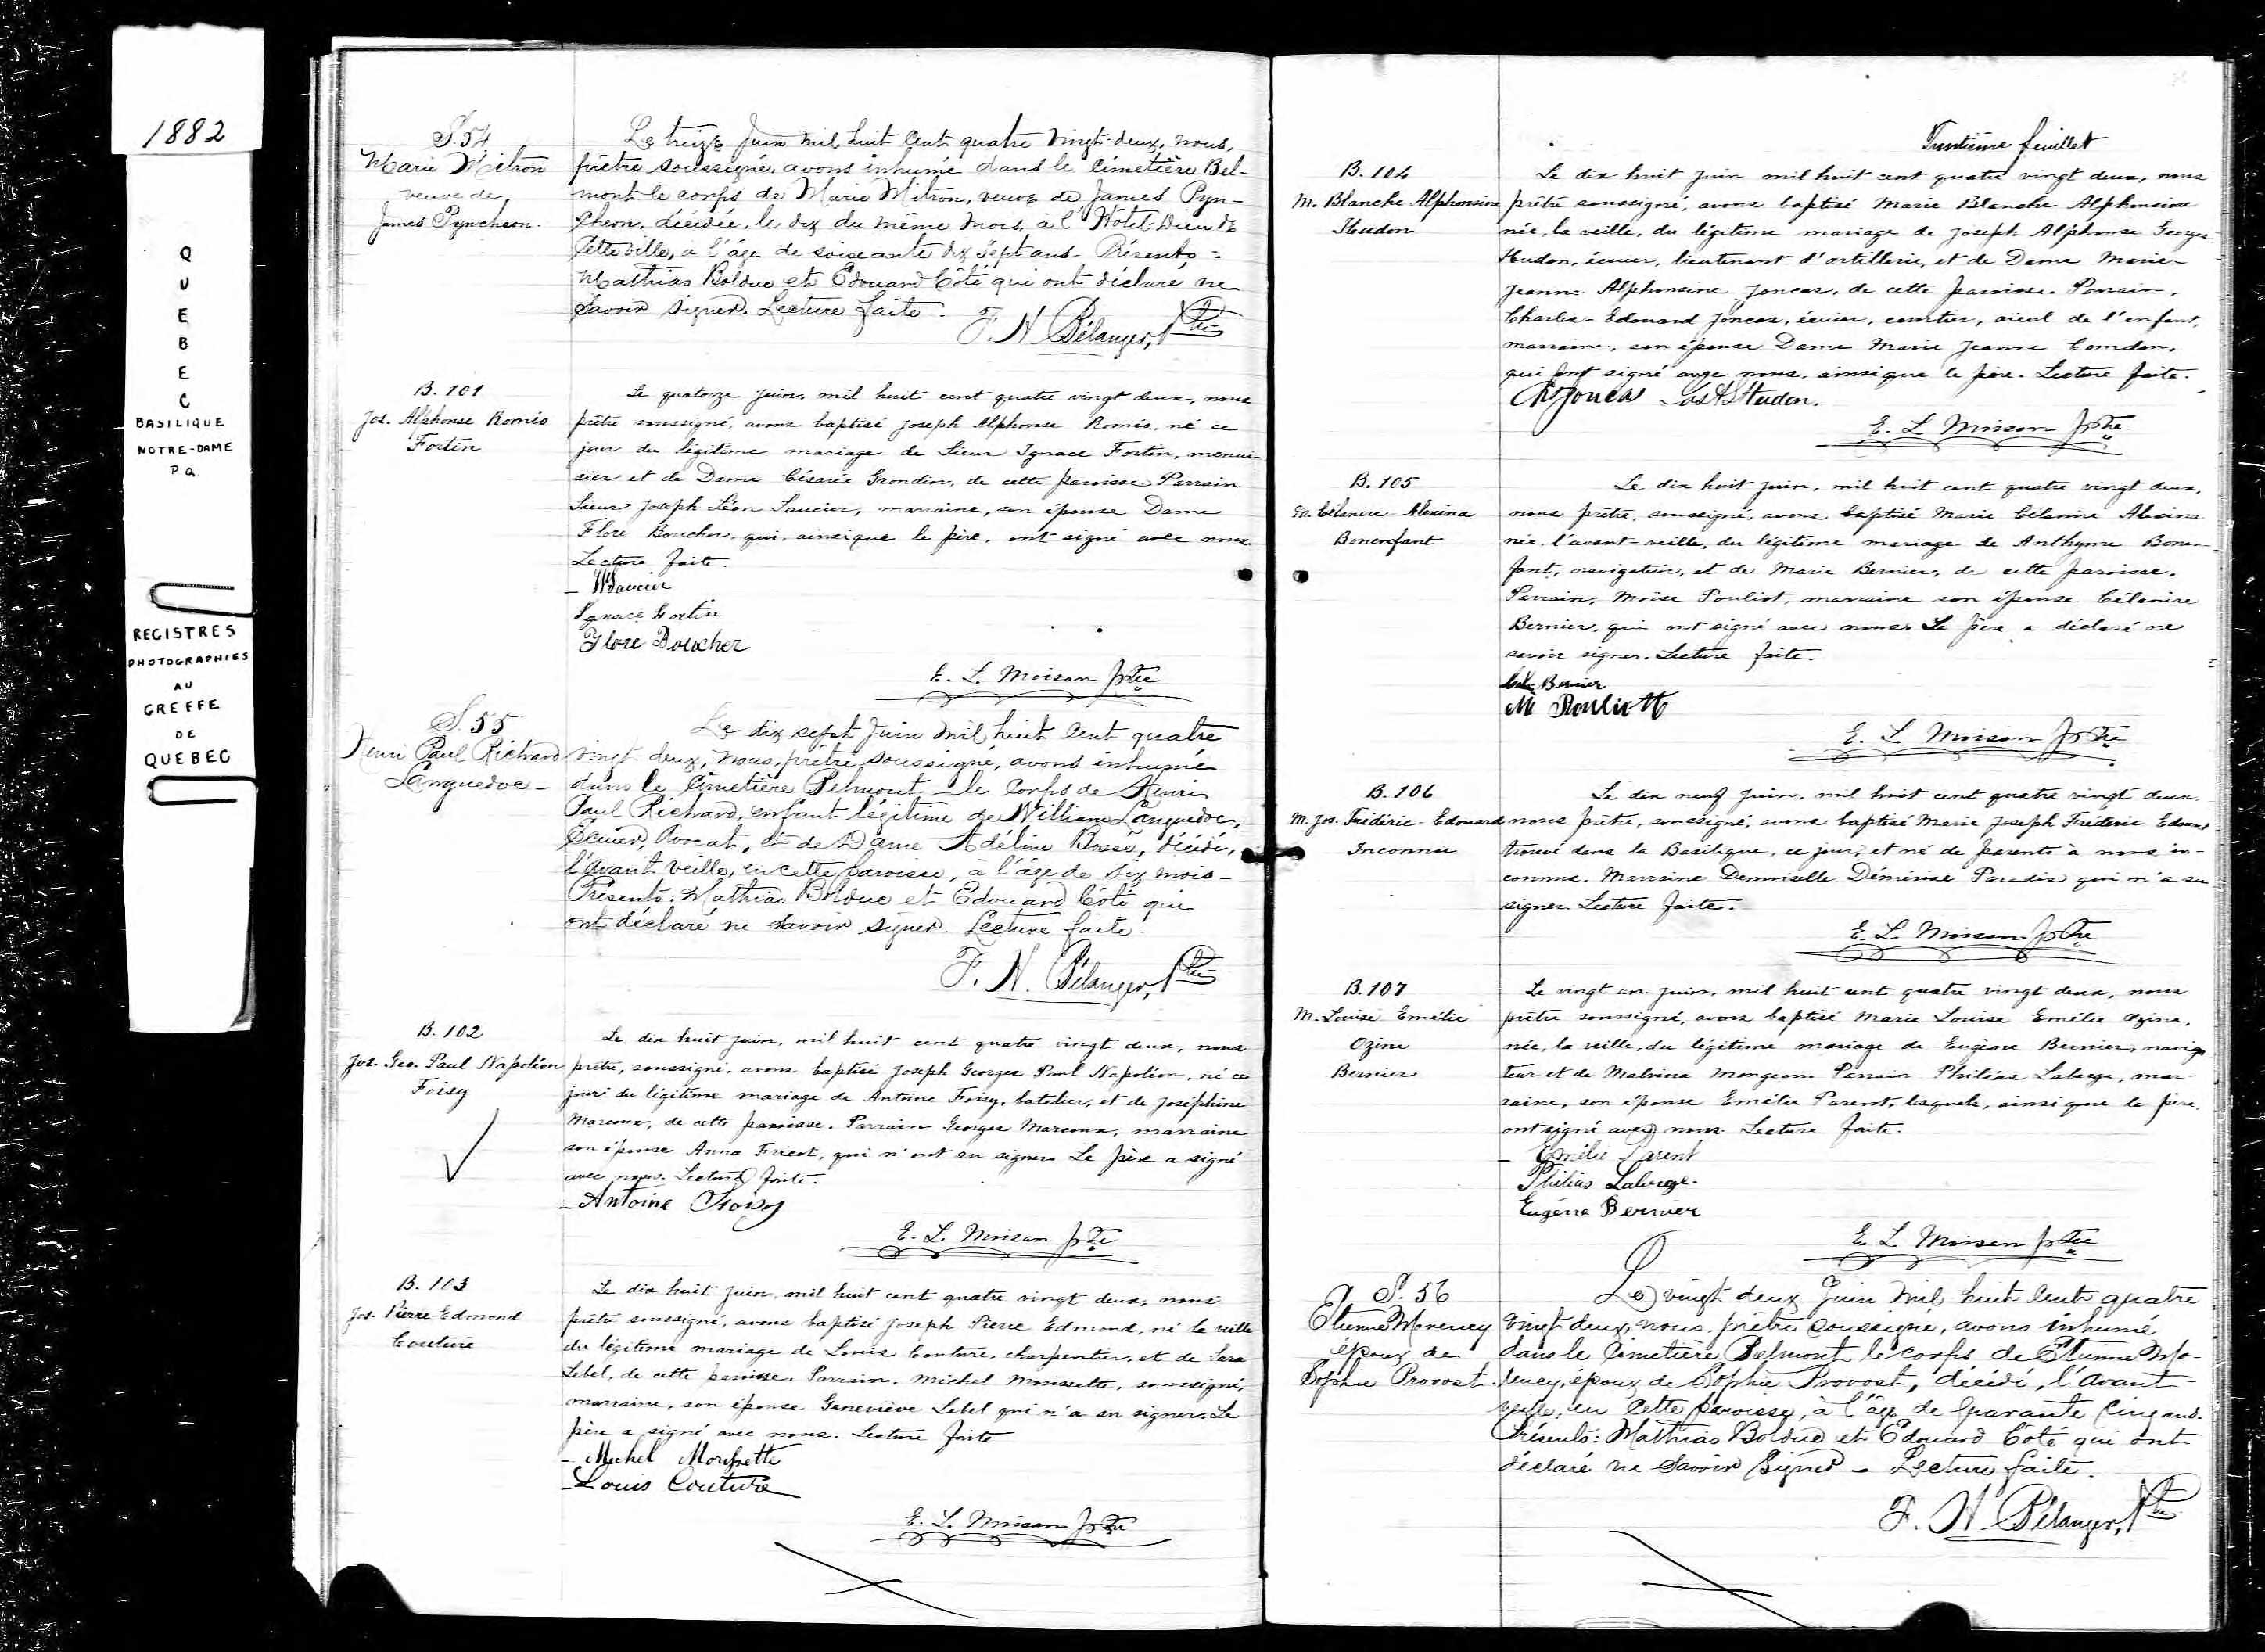 1882
QUEBEC
BASILIQUE
NOTRE-DAME
P.Q.
REGISTRES
PHOTOGRAPHIES
AU
GREFFE
DE
QUEBEC
S. 54
Marie Mitron
veuve de
James Pyncheon.
Le treize Juin mil huit cent quatre vingt-deux, nous,
prêtre soussigné, avons inhumé dans le Cimetière Bel-
mont le corps de Marie Mitron, veuve de James Pyn-
cheon, décédée, le dix du même mois, à l'Hôtel-Dieu de
cette ville, à l'âge de soixante dix sept ans. Présents:
Mathias Bolduc et Edouard Côté qui ont déclaré ne
savoir signer. Lecture faite.
F. H. Bélanger, Ptre
B. 101
Jos. Alphonse Roméo
Fortin
Le quatorze juin, mil huit cent quatre vingt deux, nous
prêtre soussigné, avons baptisé Joseph Alphonse Roméo, né ce
jour du légitime mariage de Sieur Ignace Fortin, menui-
sier et de Dame Césarie Grondin, de cette paroisse. Parrain
Sieur Joseph Léon Saucier, marraine, son épouse Dame
Flore Boucher, qui, ainsi que le père, ont signé avec nous.
Lecture faite.
Saucier
Ignace Fortin
Flore Boucher
E. L. Moisan ptre
S. 55
Henri Paul Richard
Languedoc
Le dix sept Juin mil huit cent quatre
vingt deux, nous, prêtre soussigné, avons inhumé
dans le Cimetière Belmont le corps de Henri
Paul Richard, enfant légitime de William Languedoc,
Ecuier, Avocat, et de Dame Adéline Bossé, décédé,
l'avant veille, en cette paroisse, à l'âge de six mois.
Présents: Mathias Bolduc et Edouard Côté qui
ont déclaré ne savoir signer. Lecture faite.
F. H. Bélanger, Ptre
B. 102
Jos. Geo. Paul Napoléon
Foisy
Le dix huit juin, mil huit cent quatre vingt deux, nous
prêtre, soussigné, avons baptisé Joseph Georges Paul Napoléon, né ce
jour du légitime mariage de Antoine Foisy, batelier, et de Joséphine
Marcoux, de cette paroisse. Parrain Georges Marcoux, marraine
son épouse Anna Fricot, qui n'ont su signer. Le père a signé
avec nous. Lecture faite.
Antoine Foisy
E. L. Moisan ptre
B. 103
Jos. Pierre-Edmond
Couture
Le dix huit juin, mil huit cent quatre vingt deux, nous
prêtre soussigné, avons baptisé Joseph Pierre Edmond, né la veille
du légitime mariage de Louis Couture, charpentier, et de Sara
Lebel, de cette paroisse. Parrain, Michel Morissette, soussigné,
marraine, son épouse Geneviève Lebel qui n'a su signer. Le
père a signé avec nous. Lecture faite
Michel Morissette
Louis Couture
E. L. Moisan ptre
Trentième feuillet
B. 104
M. Blanche Alphonsine
Hudon
Le dix huit juin mil huit cent quatre vingt deux, nous
prêtre soussigné, avons baptisé Marie Blanche Alphonsine
née, la veille, du légitime mariage de Joseph Alphonse George
Hudon, écuier, lieutenant d'artillerie, et de Dame Marie-
Jeanne-Alphonsine Joncas, de cette paroisse. Parrain,
Charles-Edouard Joncas, écuier, courtier, aïeul de l'enfant,
marraine, son épouse Dame Marie Jeanne
qui ont signé avec nous, ainsi que le père. Lecture faite.
Joncas Hudon.
E. L. Moisan ptre
B. 105
Célanire-Alexina
Bonenfant
Le dix huit juin, mil huit cent quatre vingt deux,
nous prêtre, soussigné, avons baptisé Marie Célanire Alexina
née, l'avant-veille, du légitime mariage de Anthyme Bonen-
fant, navigateur, et de Marie Bernier, de cette paroisse.
Parrain, Moïse Pouliot, marraine son épouse Célanire
Bernier, qui ont signé avec nous. Le père a déclaré ne
savoir signer. Lecture faite.
Bernier
M Pouliott
E. L Moisan Ptre
B. 106
M. Jos. Frédéric-Edouard
Inconnu
Le dix neuf juin, mil huit cent quatre vingt deux,
nous prêtre, soussigné, avons baptisé Marie Joseph Frédéric Edouard
trouvé dans la Basilique, ce jour, et né de parents à nous in-
connus. Marraine Demoiselle Démérise Paradis qui n'a su
signer. Lecture faite.
E. L Moisan ptre
B. 107
M. Louise Emélie
Ozine
Bernier
Le vingt un juin, mil huit cent quatre vingt deux, nous
prêtre soussigné, avons baptisé Marie Louise Emélie Ozine,
née, la veille, du légitime mariage de Eugène Bernier, naviga-
teur et de Malvina Mongeon. Parrain Philéas Laberge, mar-
raine, son épouse Emélie Parent, lesquels, ainsi que le père,
ont signé avec nous. Lecture faite.
Emélie Parent
Philias Laberge
Eugène Bernier
E. L Moisan ptre
S. 56
Etienne Morency
époux de
Sophie Provost.
Le vingt deux Juin mil huit cent quatre
vingt deux, nous, prêtre soussigné, avons inhumé
dans le Cimetière Belmont le corps de Etienne Mo-
rency, époux de Sophie Provost, décédé, l'avant-
veille, en cette paroisse, à l'âge de quarante cinq ans.
Présents: Mathias Bolduc et Edouard Côté qui ont
déclaré ne savoir signer - Lecture faite.
F. H Bélanger, Ptre